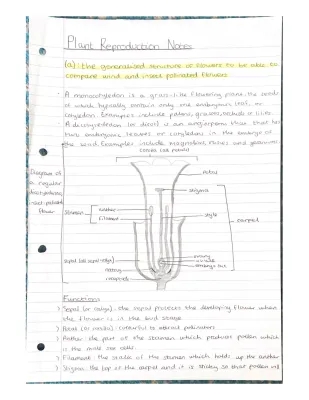 Plant Reproduction Notes
(a): the generalised structure of flowers to be able to
compare wind and insect pollinated flowers
A monocotyledon is a grass-like flowering plant, the seeds
of which typically contain only one embryonic leaf, or
cotyledon. Examples include palms, grasses, orchids or lilies.
A dicotyledon (or dicot) is an angiosperm that has
two embryonic leaves or cotyledons in the embryo of
the seed. Examples include magnolias, roses and geraniums.
corolla (all petals)
Diagram of
a regular
dicotyledonous,
insect pollinated
flower
petal
stigma
stamen
anther
filament
style
carpel
sepal (all sepals calyx)
ovary
ovule
embryo sac
nectary
receptacle
Functions
Sepal (or calyx) - the sepal protects the developing flower when
the flower is in the bud stage.
Petal (or corolla) - colourful to attract pollinators
Anther - the part of the stamen which produces pollen which
is the male sex cells.
Filament - the stalk of the stamen which holds up the anther
Stigma - the top of the carpel and it is sticky so that pollen will